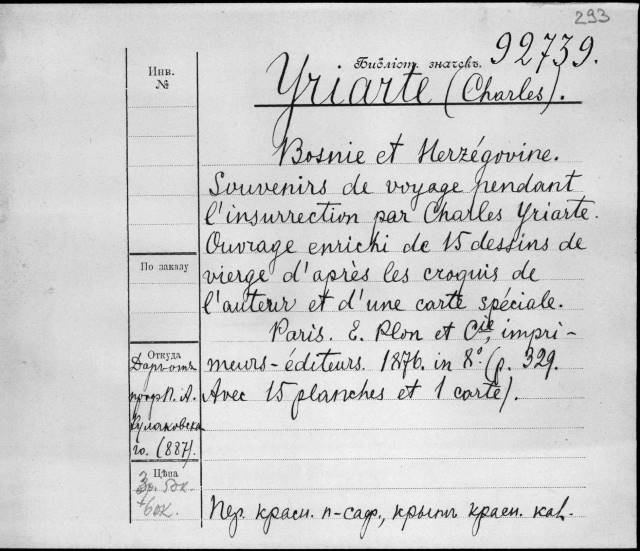 293
Инв.
№
Библіот. значекъ. 92739.
Yriarte (Charles).
Bosnie et Herzégovine.
Souvenirs de voyage pendant
l'insurrection par Charles Yriarte.
Ouvrage enrichi de 15 dessins de
vierge d'après les croquis de
l'auteur et d'une carte spéciale.
Paris. E. Plon et Cie, impri-
meurs-éditeurs. 1876. in 8º. (p. 329.
Avec 15 planches et 1 carte).
По заказу
Откуда
Даръ отъ
проф. П. А.
Кулаковска
го. (887).
Цѣна
3р. 50к.
+60к.
Пер. красн. п-саф., крыт. красн. кал.